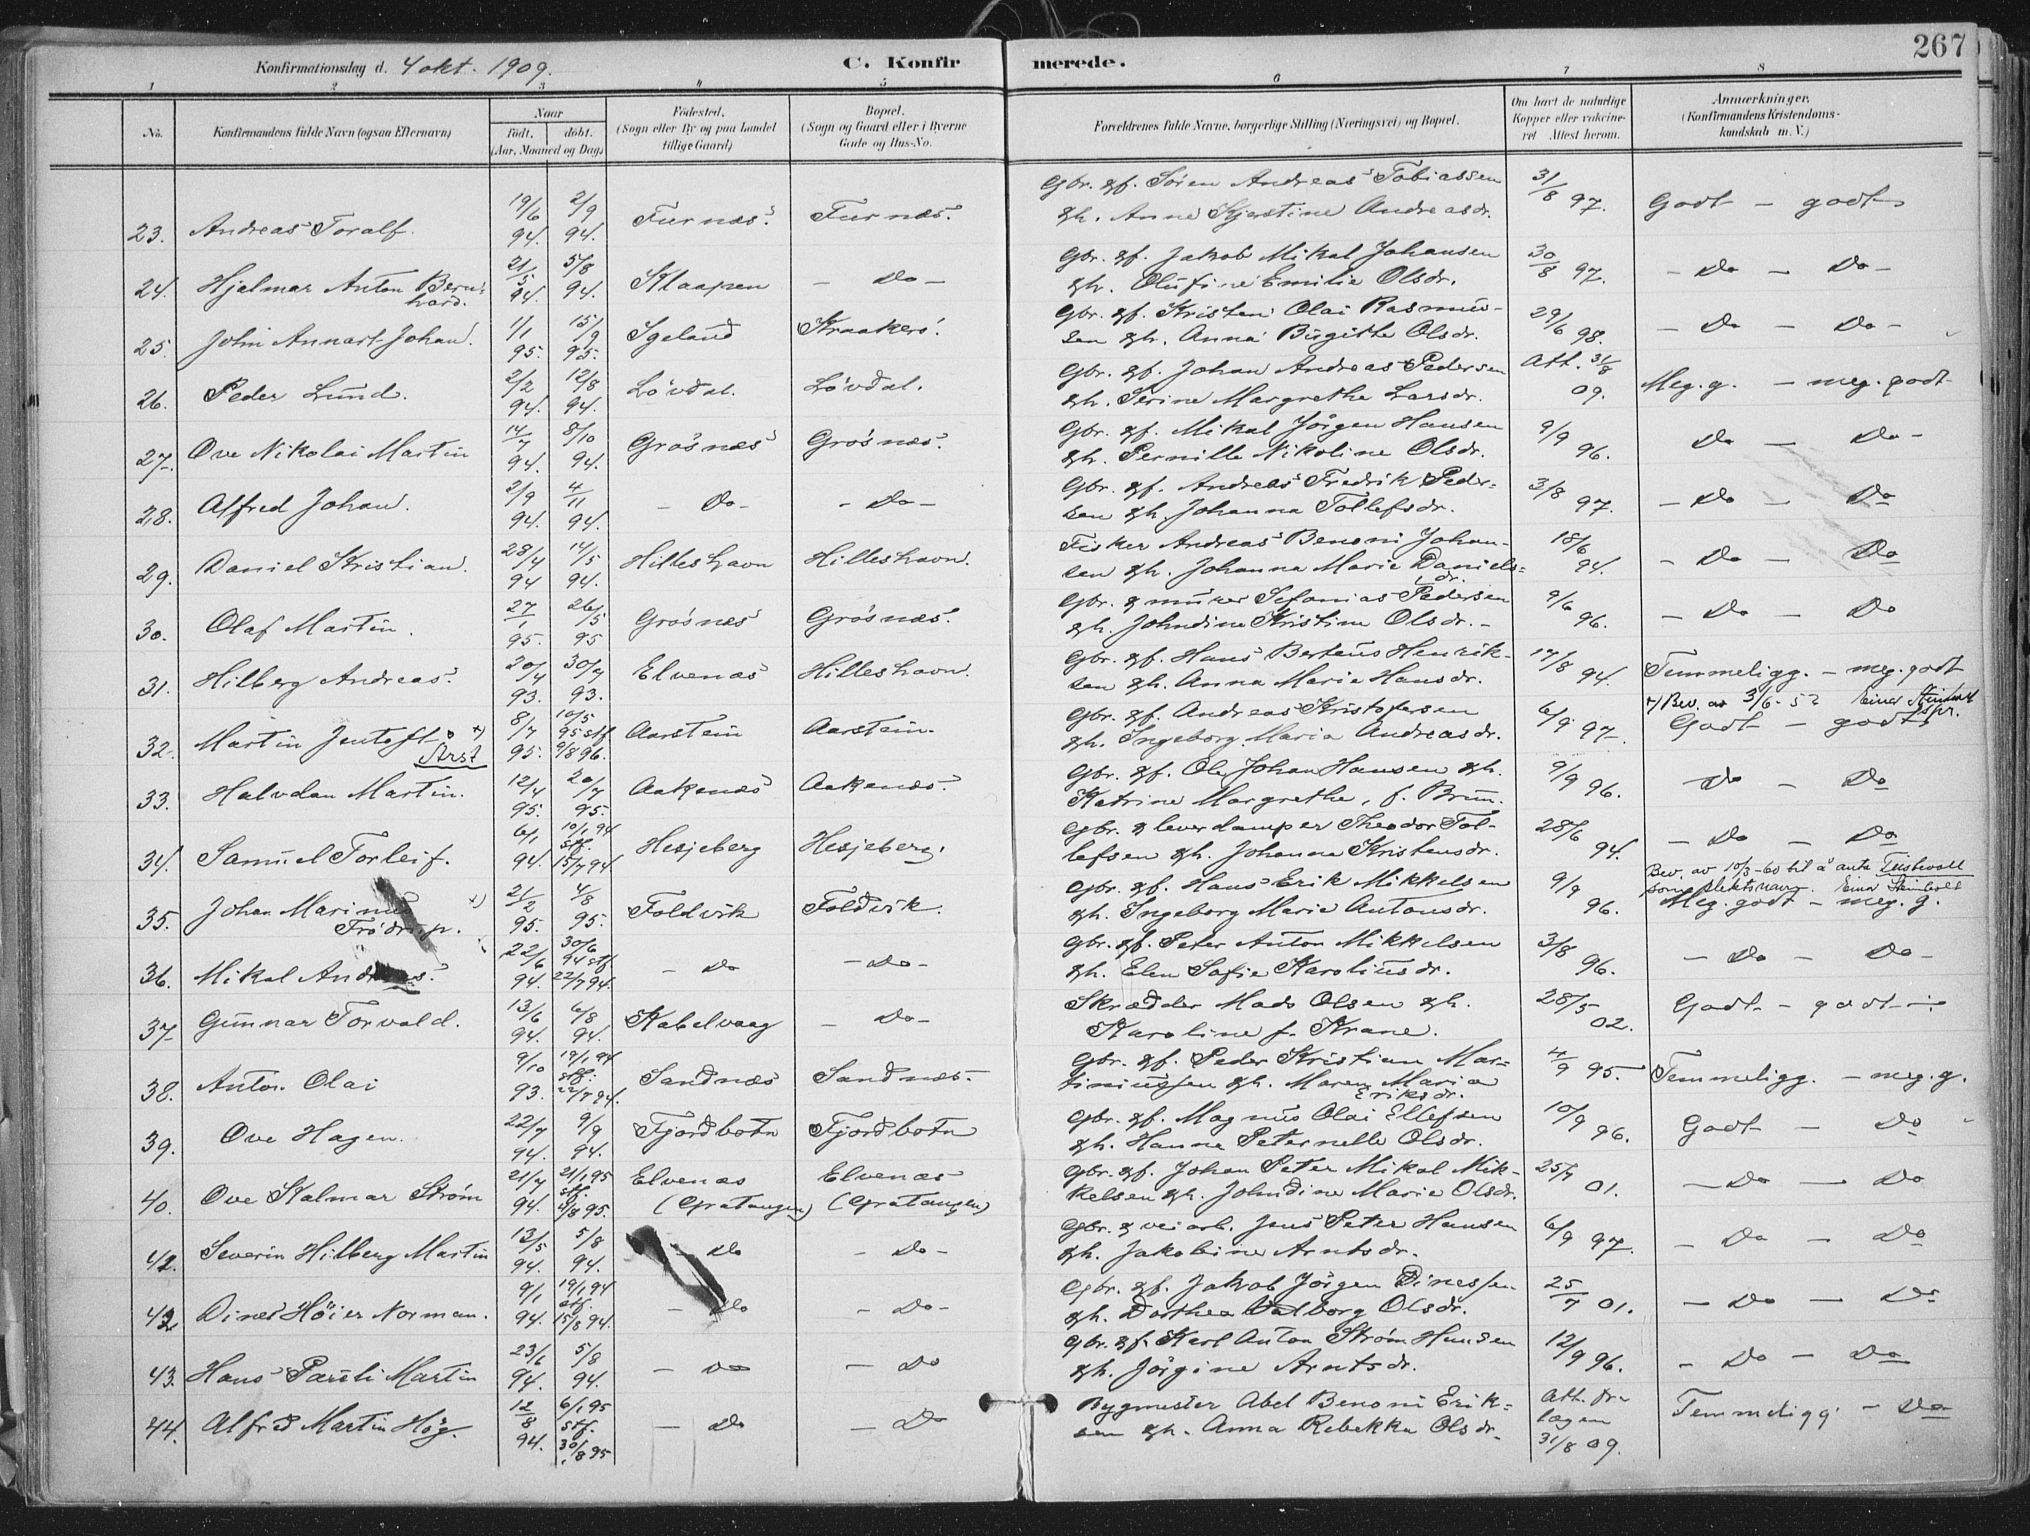 267
Konfirmationsdag d. 4 okt. 1909.
C. Konfirmerede.
1 2 3 4 5 6 7 8
No.
Konfirmandens fulde Navn (ogsaa Efternavn)
Naar
født. døbt.
(Aar, Maaned og Dag)
Fødested.
(Sogn eller By og paa Landet
tillige Gaard)
Bopæl.
(Sogn og Gaard eller i Byerne
Gade og Hus-No.
Forældrenes fulde Navne, borgerlige Stilling (Næringsvei) og Bopæl.
Om havt de naturlige
Kopper eller vakcineret
Attest herom.
Anmærkninger.
(Konfirmandens Kristendomskundskab m. V.)
23. Andreas Toralf. 19/6 94. 2/9 94. Furnæs. Furnæs. Gbr. & f. Sören Andreas Tobiassen & h. Anne Kjerstine Andreasdr. 31/8 97. Godt – godt
24. Hjalmar Anton Bernhard. 21/5 94. 5/8 94. Klaapen – Do – Gbr. & f. Jakob Mikal Johansen & h. Olufine Emilie Olsdr. 30/8 97. – Do – Do –
25. John Annart Johan. 1/1 95. 15/9 95. Igeland Kraakerö. Gbr. & f. Kristen Olai Rasmussen & h. Anna Birgitte Olsdr. 29/6 98. – Do – Do –
26. Peder Lund. 2/2 94. 12/8 94. Lövdal. Lövdal. Gbr. & f. Johan Andreas Pedersen & h. Serine Margrethe Larsdr. Att. 31/8 09. Meg. g. – meg. godt
27. Ove Nikolai Martin 14/7 94. 8/10 94. Grosnæs Grosnæs. Gbr. & f. Mikal Jörgen Hansen & h. Pernille Nikoline Olsdr. 9/9 96. Do – Do –
28. Alfred Johan. 2/9 94. 4/11 94. – Do – – Do – Gbr. & f. Andreas Fredrik Pedersen & h. Johanna Tollefsdr. 3/8 97. – Do – Do
29. Daniel Kristian. 28/4 94 14/5 94. Hilleshavn Hilleshavn. Fisker Andreas Benoni Johansen & h. Johanna Marie Danielsdr. 18/6 94. – Do – Do
30. Olaf Martin. 27/1 95. 26/5 95 Grosnæs Grosnæs. Gbr. & murer Sefanias Pedersen & h. Johndine Kristine Olsdr. – 9/6 96. – Do – Do
31. Hilberg Andreas. 20/4 93. 30/7 93. Elvenæs Hilleshavn. Gbr. & f. Hans Berteus Henriksen & h. Anna Marie Hansdr. 17/8 94. Temmelig g. – meg. godt
32. Martin Jentoft x) Arst 8/7 95. 10/5 95 stf. 9/8 96. Aarstein Aarstein. Gbr. & f. Andreas Kristofersen & h. Ingeborg Maria Andreasdr. 6/9 97. x) Bev. av 3/6-52 Einar Steinholt spr. Godt – godt
33. Halvdan Martin. 12/4 95. 20/7 95. Aakenæs Aakenæs. Gbr. & f. Ole Johan Hansen & h. Katrine Margrethe, f. Brun. 9/9 96. Do – Do
34. Samuel Torleif. 6/1 94. 10/1 94 stf. 15/7 94 Hesjeberg Hesjeberg. Gbr. & leverdamper Theodor Tollefsen & h. Johanna Kristensdr. 28/6 94. – Do – Do
35. Johan Marinus Frödrup. x) 21/2 95. 4/8 95. Foldvik Foldvik. Gbr. & f. Hans Erik Mikkelsen & h. Ingeborg Marie Antonsdr. 9/9 96. Bev. av 10/3-60 til å anta Teistevoll som slektsnavn. Einar Steinholt Meg. godt – meg. g.
36. Mikal Andreas. 22/6 94. 30/6 94 stf. 22/7 94. – Do – Do – Gbr. & f. Peter Anton Mikkelsen & h. Elen Sofie Karoliusdr. 3/8 96. – Do – Do –
37. Gunnar Torvald. 13/6 94. 6/8 94. Kabelvaag – Do – Skrædder Mads Olsen & h. Karoline f. Krane. 28/5 02. Godt – godt –
38. Anton Olai 9/10 93. 19/1 94 stf. 22/7 94. Sandnæs Sandnæs. Gbr. & f. Peder Kristian Martiniussen & h. Maren Maria Eriksdr. 4/9 95. Temmelig g. – meg. g.
39. Ove Hagen. 22/7 94. 9/9 94. Fjordbotn Fjordbotn Gbr. & f. Magnus Olai Ellefsen & h. Hanna Peternelle Olsdr. 10/9 96. Godt – Do
40. Ove Kalmar Ström 21/7 94. 21/1 95 stf. 95. Elvenæs (Gratangen) Elvenæs (Gratangen) Gbr. & f. Johan Peter Mikal Mikkelsen & h. Johndine Marie Olsdr. 25/7 01. – Do – Do
42. Severin Hilberg Martin 13/5 94. 5/8 94. Do – Do – Gbr. & veiarb. Jens Peter Hansen & h. Jakobine Arntsdr. 6/9 97. – Do – Do
42 Dines Höier Norman. 9/1 94. 19/1 94 stf. 15/8 94. – Do – Do – Gbr. & f. Jakob Jörgen Dinessen & h. Dorthea Valborg Olsdr. 25/7 01. – Do – Do
43. Hans Pareli Martin 23/6 94. 5/8 94. – Do – Do Gbr. & f. Karl Anton Ström Hansen & h. Jörgine Arntsdr. 12/9 96. – Do – Do
44. Alfred Martin Hög. 12/8 94. 6/1 95 stf. 30/8 95 – Do – Do Bygmester Abel Benoni Eriksen & h. Anna Rebekka Olsdr. Att. fra lægen 31/8 09. Temmelig g. – Do